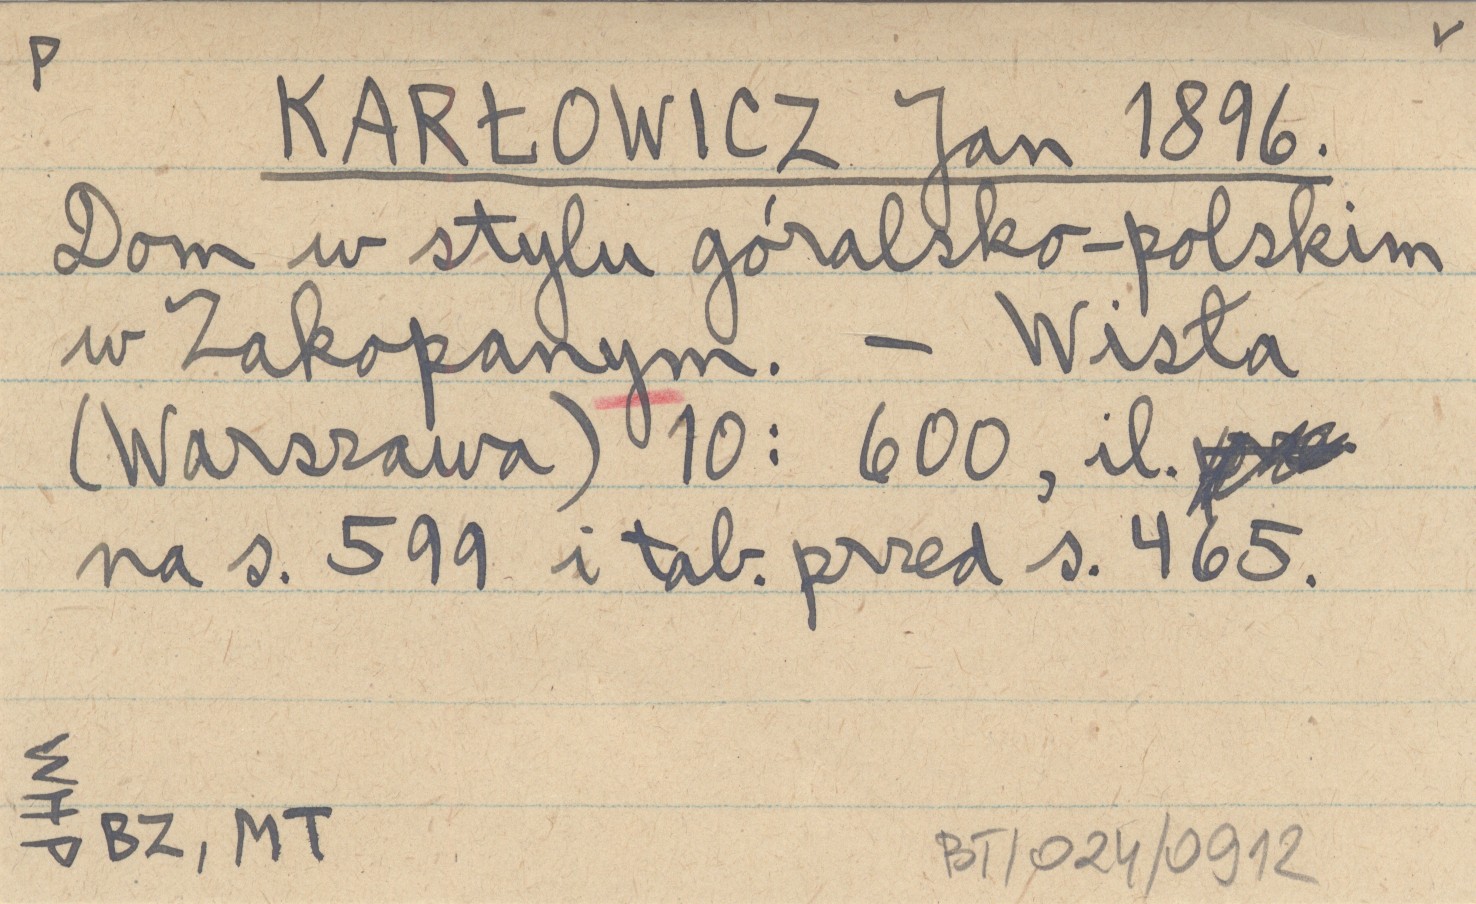 P
✓
KARŁOWICZ Jan 1896.
Dom w stylu góralsko-polskim
w Zakopanym. – Wisła
(Warszawa) 10: 600, il.
na s. 599 i tab. przed s. 465.
WHP
BZ, MT
BT/024/0912